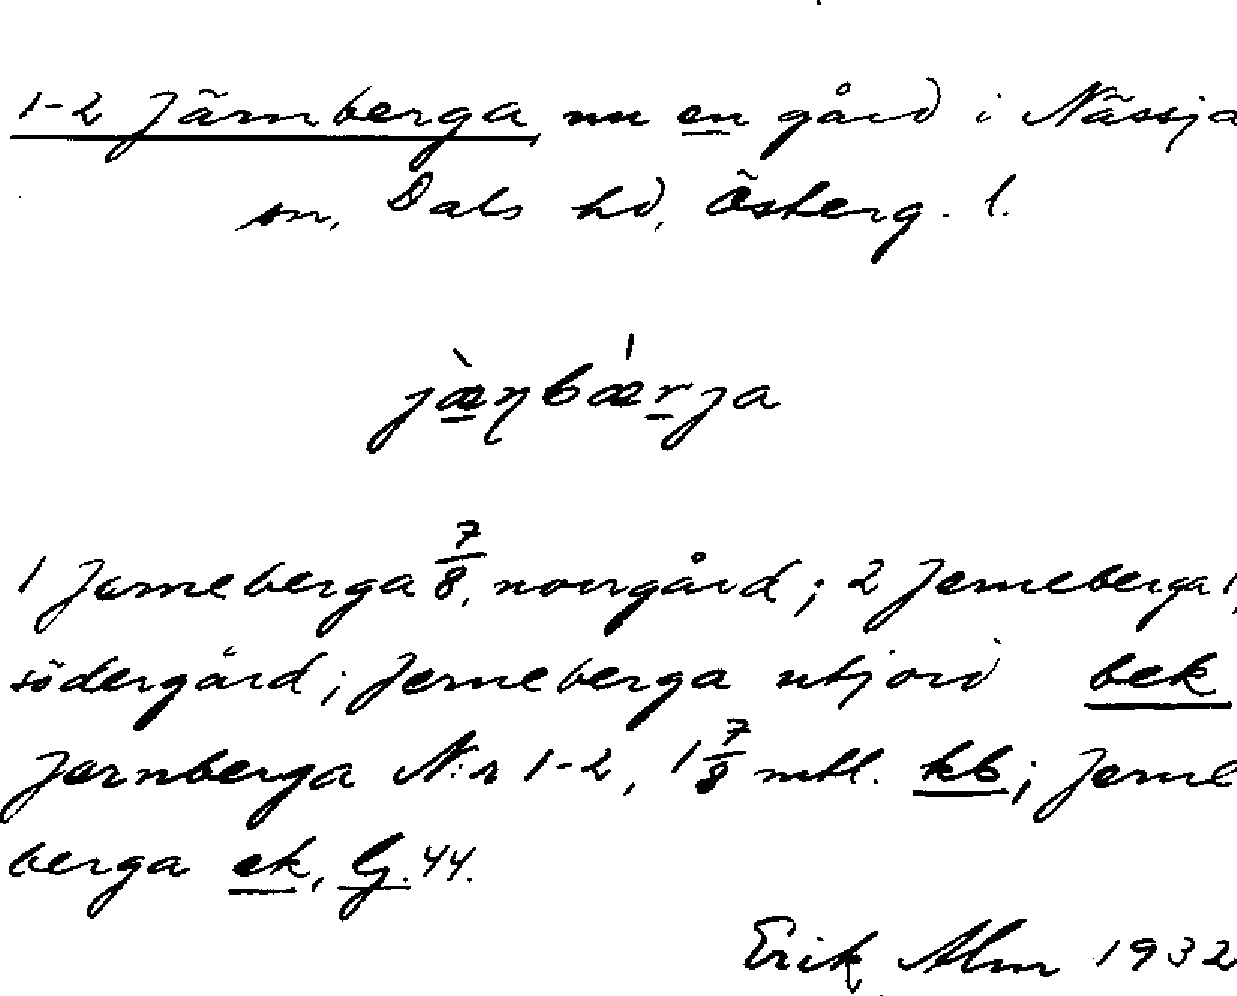 1-2 Järnberga nu en gård i Nässja
sn, Dals hd, Österg. l.
jæ̀ɳbǽrja
1 Jerneberga 7/8, norrgård; 2 Jerneberga 1,
södergård; Jerneberga utjord bek
Jernberga N:r 1-2, 1 7/8 mtl. kb; Jerne
berga ek, Lj. 44.
Erik Alm 1932